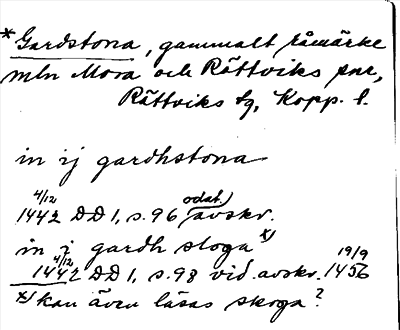 *Gardstona, gammalt råmärke
mln Mora och Rättviks snr,
Rättviks tg, Kopp. l.
in ij gardhstona
4/12 odat.
1442 DD 1, s. 96 avskr.
in j gardh stoga x)
4/12 19/9
1442 DD 1, s. 98 vid. avskr. 1456
x) kan även läsas skoga?